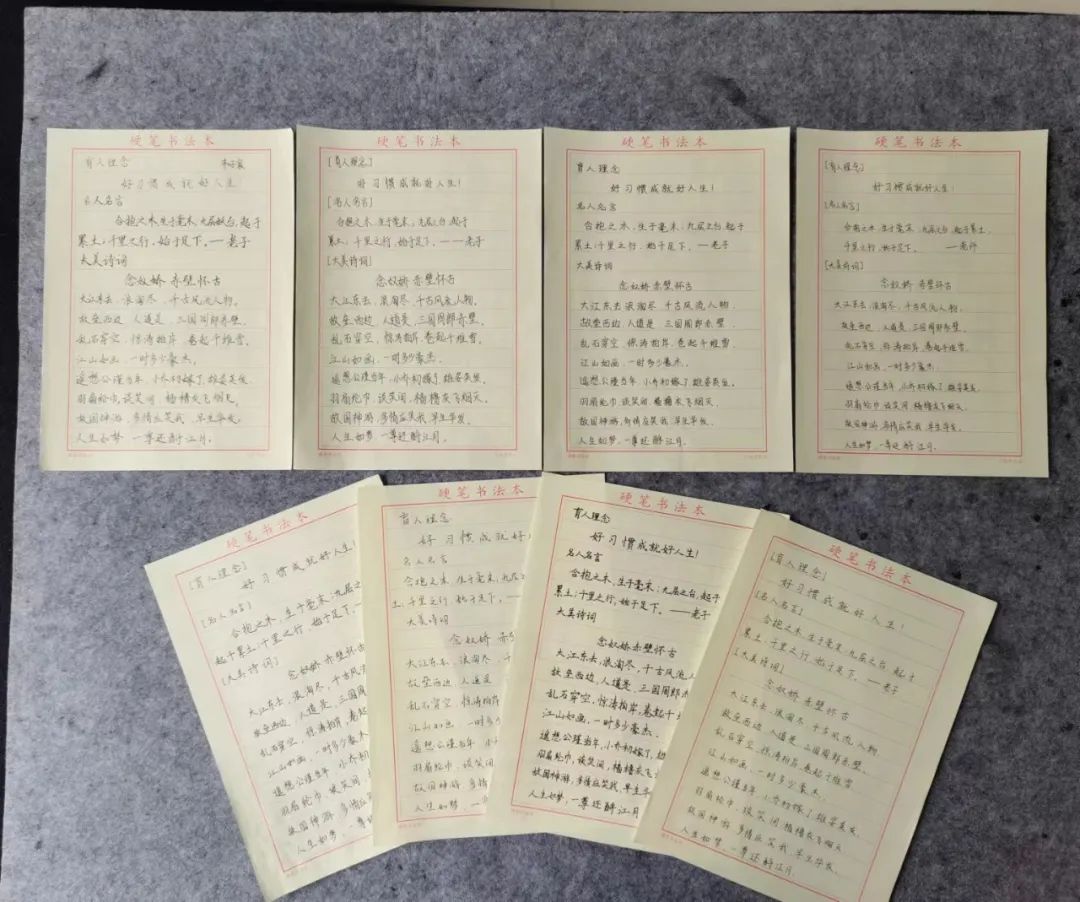 硬笔书法本
育人理念
好习惯成就好人生!
名人名言
合抱之木,生于毫末,九层之台,起于
累土;千里之行,始于足下。——老子
大美诗词
念奴娇 赤壁怀古
大江东去,浪淘尽,千古风流人物。
故垒西边,人道是,三国周郎赤壁。
乱石穿空,惊涛拍岸,卷起千堆雪。
江山如画,一时多少豪杰。
遥想公瑾当年,小乔初嫁了,雄姿英发。
羽扇纶巾,谈笑间,樯橹灰飞烟灭。
故国神游,多情应笑我,早生华发。
人生如梦,一尊还酹江月。
硬笔书法本
[育人理念]
好习惯成就好人生!
[名人名言]
合抱之木,生于毫末,九层之台,起于
累土;千里之行,始于足下。——老子
[大美诗词]
念奴娇 赤壁怀古
大江东去,浪淘尽,千古风流人物。
故垒西边,人道是,三国周郎赤壁。
乱石穿空,惊涛拍岸,卷起千堆雪。
江山如画,一时多少豪杰。
遥想公瑾当年,小乔初嫁了,雄姿英发。
羽扇纶巾,谈笑间,樯橹灰飞烟灭。
故国神游,多情应笑我,早生华发。
人生如梦,一尊还酹江月。
硬笔书法本
育人理念
好习惯成就好人生!
名人名言
合抱之木,生于毫末,九层之台,起于
累土;千里之行,始于足下。——老子
大美诗词
念奴娇 赤壁怀古
大江东去 浪淘尽 千古风流人物
故垒西边 人道是 三国周郎赤壁
乱石穿空,惊涛拍岸,卷起千堆雪
江山如画,一时多少豪杰。
遥想公瑾当年,小乔初嫁了,雄姿英发。
羽扇纶巾,谈笑间,樯橹灰飞烟灭。
故国神游,多情应笑我,早生华发,
人生如梦,一尊还酹江月
硬笔书法本
[育人理念]
好习惯成就好人生!
[名人名言]
合抱之木,生于毫末,九层之台,起于累土,
千里之行,始于足下。——老师
[大美诗词]
念奴娇 赤壁怀古
大江东去,浪淘尽,千古风流人物。
故垒西边,人道是,三国周郎赤壁
乱石穿空,惊涛拍岸,卷起千堆雪。
江山如画,一时多少豪杰。
遥想公瑾当年,小乔初嫁了,雄姿英发
羽扇纶巾,谈笑间,樯橹灰飞烟灭,
故国神游,多情应笑我,早生华发。
人生如梦,一尊还酹江月
硬笔书法本
[育人理念]
好习惯成就好人生!
[名人名言]
合抱之木,生于毫末;九层之台,
起于累土;千里之行,始于足下,
[大美诗词]
念奴娇 赤壁怀古
大江东去,浪淘尽,千古风流
故垒西边,人道是,三国周
乱石穿空,惊涛拍岸,卷
江山如画,一时多少豪
遥想公瑾当年,小乔
羽扇纶巾,谈笑间,
故国神游,多情应
人生如梦,一
硬笔书法本
育人理念
好习惯成就好
名人名言
合抱之木,生于毫末,九层
土;千里之行,始于足下,
大美诗词
念奴娇 赤
大江东去,浪淘尽,千
故垒西边 人道是
乱石穿空,惊涛拍
江山如画 一时多
遥想公瑾当年,
羽扇纶巾,谈笑
故国神游,多情
人生如梦,一
硬笔书法本
育人理念
好习惯成就好人生!
名人名言
合抱之木,生于毫末;九层之台,起于
累土;千里之行,始于足下。——老子
大美诗词
念奴娇 赤壁怀古
大江东去,浪淘尽,千古风流人
故垒西边,人道是,三国周郎
乱石穿空,惊涛拍岸,卷起千
江山如画,一时多少豪杰。
遥想公瑾当年,小乔初嫁了,
羽扇纶巾,谈笑间,樯橹灰飞
故国神游,多情应笑我,早生
人生如梦,一尊还酹江月
硬笔书法本
[育人理念]
好习惯成就好人生!
[名人名言]
合抱之木,生于毫末;九层之台,起于
累土;千里之行,始于足下。——老子
[大美诗词]
念奴娇 赤壁怀古
大江东去,浪淘尽,千古风流人物,
故垒西边,人道是,三国周郎赤壁,
乱石穿空,惊涛拍岸,卷起千堆雪
江山如画,一时多少豪杰,
遥想公瑾当年,小乔初嫁了,雄姿英发,
羽扇纶巾,谈笑间,樯橹灰飞烟灭
故国神游,多情应笑我,早生华发,
人生如梦,一尊还酹江月,